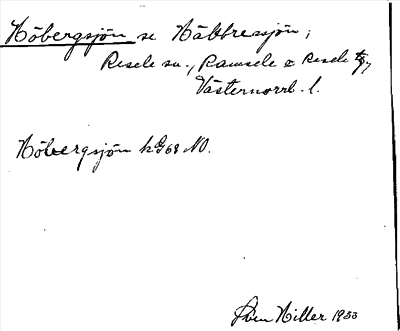 Höbergsjön se Hällbressjön;
Resele sn., Ramsele & Resele tg,
Västernorrl. l.
Höbergsjön kG68 NO.
Sven Hiller 1933